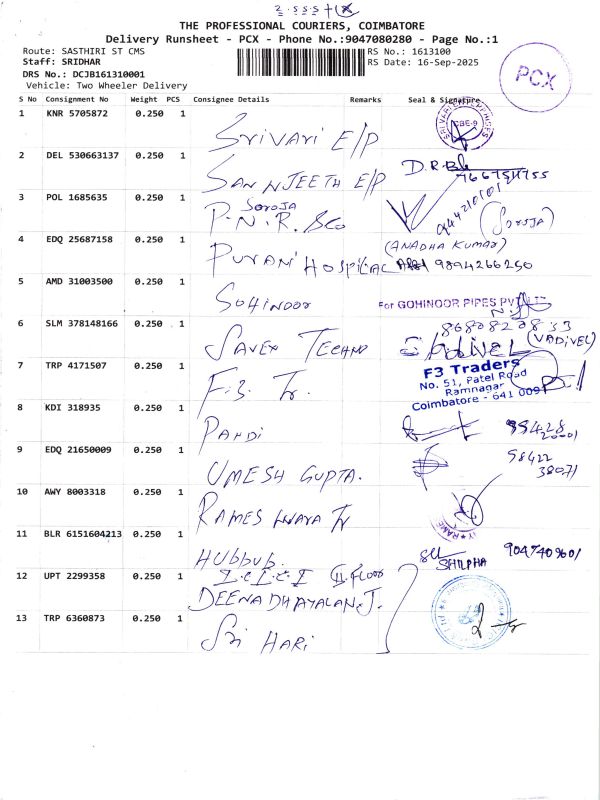 THE PROFESSIONAL COURIERS, COIMBATORE
Delivery Runsheet - PCX - Phone No.:9047080280 - Page No.:1
Route: SASTHIRI ST CMS RS No.: 1613100
Staff: SRIDHAR RS Date: 16-Sep-2025
DRS No.: DCJB161310001
Vehicle: Two Wheeler Delivery
PCX
S No Consignment No Weight PCS Consignee Details Remarks Seal & Signature
1 KNR 5705872 0.250 1 Srivari E/P CBE-9
2 DEL 530663137 0.250 1 SANNJEETH E/P D.R.
3 POL 1685635 0.250 1 Saroja P.N.R. &Co 9442101011 (Saroja)
4 EDQ 25687158 0.250 1 PURANI HOSPITAL (ANADHA KUMAR) 9894266250
5 AMD 31003500 0.250 1 Gohinoor For GOHINOOR PIPES PVT LTD
6 SLM 378148166 0.250 1 SAVEX TECHNO (VADIVEL)
7 TRP 4171507 0.250 1 F.3. Tr. F3 Traders
No. 51, Patel Road
Ramnagar
Coimbatore - 641 009
8 KDI 318935 0.250 1 PANDI
9 EDQ 21650009 0.250 1 UMESH GUPTA. 98422
38071
10 AWY 8003318 0.250 1 RAMESHWARA Tr
11 BLR 6151604213 0.250 1 HUBBUB. SHILPHA
12 UPT 2299358 0.250 1 I.C.I.C.I II.FLOOR
DEENADHAYALAN.J.
13 TRP 6360873 0.250 1 Sri HARI